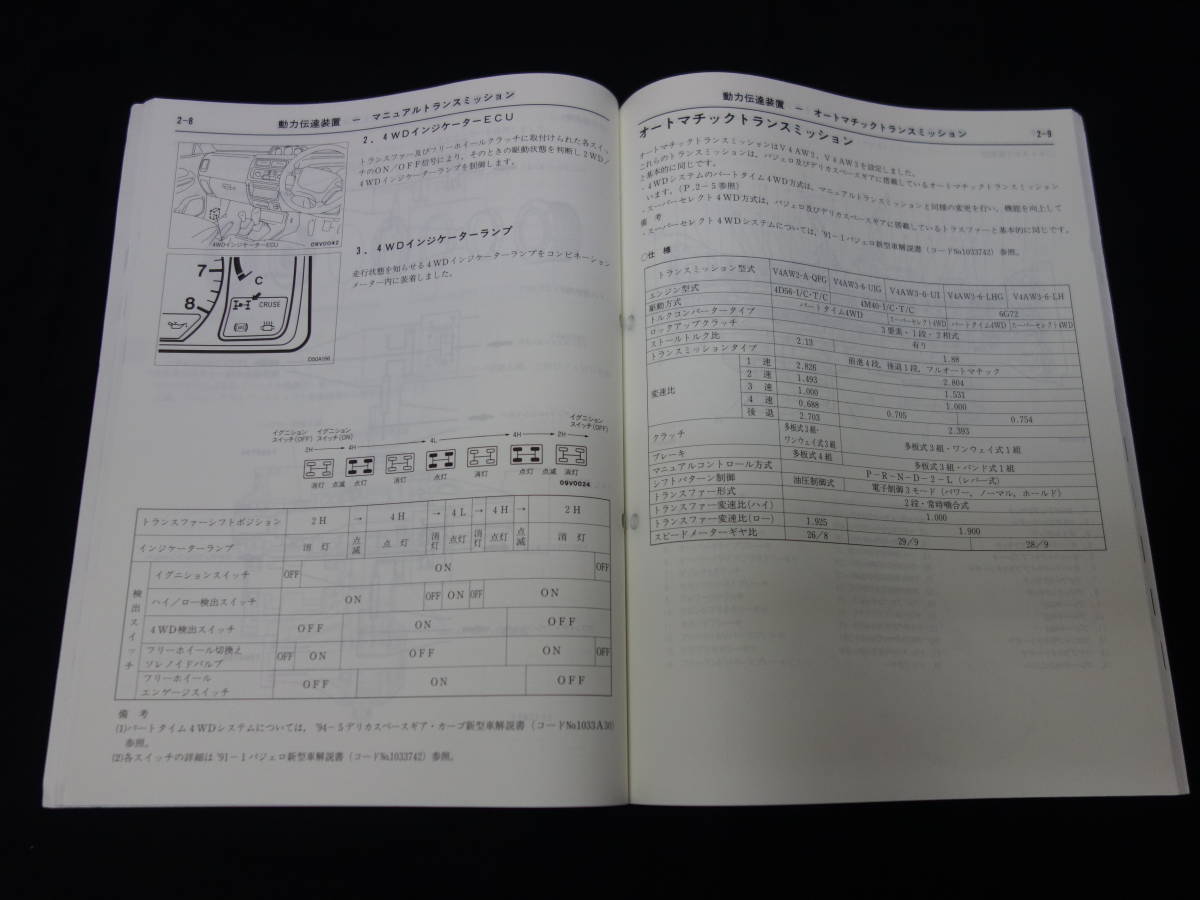 2-8
動力伝達装置 － マニュアルトランスミッション
2．4WDインジケーターECU
トランスファー及びフリーホイールクラッチに取付けられた各スイッ
チのON/OFF信号により，そのときの駆動状態を判断し2WD/
4WDインジケーターランプを制御します。
4WDインジケーターECU
09V0042
3．4WDインジケーターランプ
走行状態を知らせる4WDインジケーターランプをコンビネーション
メーター内に装着しました。
7
8
C
CRUSE
イグニション スイッチ(OFF)
イグニション スイッチ(ON)
2H 4H 4L 4H 2H
消灯 点滅 点灯 消灯 点灯 消灯 点灯 点滅 消灯
09V0024
トランスファーシフトポジション 2H → 4H → 4L → 4H → 2H
インジケーターランプ 消灯 点滅 点灯 消灯 点灯 消灯 点灯 点滅 消灯
検出スイッチ
イグニションスイッチ OFF ON OFF
ハイ/ロー検出スイッチ ON OFF ON OFF ON
4WD検出スイッチ OFF ON OFF
フリーホイール切換えソレノイドバルブ OFF ON OFF ON OFF
フリーホイールエンゲージスイッチ OFF ON OFF
備考
(1)パートタイム4WDシステムについては，'94-5デリカスペースギア・カーゴ新型車解説書（コードNo1033A30）
参照。
(2)各スイッチの詳細は'91-1パジェロ新型車解説書（コードNo.1033742）参照。
動力伝達装置 － オートマチックトランスミッション
2-9
オートマチックトランスミッション
オートマチックトランスミッションはV4AW2，V4AW3を設定しました。
これらのトランスミッションは，パジェロ及びデリカスペースギアに搭載しているオートマチックトランスミッション
と基本的に同じです。
・4WDシステムのパートタイム4WD方式は，マニュアルトランスミッションと同様の変更を行い，機能を向上して
います。(P.2-5参照)
・スーパーセレクト4WD方式は，パジェロ及びデリカスペースギアに搭載しているトラスファーと基本的に同じです。
備考
・スーパーセレクト4WDシステムについては，'91-1パジェロ新型車解説書（コードNo1033742）参照。
○仕様
トランスミッション型式 V4AW2-A-QPG V4AW3-6-UIG V4AW3-6-UI V4AW3-6-LHG V4AW3-6-LH
エンジン型式 4D56-I/C・T/C 4M40-I/C・T/C 6G72
駆動方式 パートタイム4WD スーパーセレクト4WD パートタイム4WD スーパーセレクト4WD
トルクコンバータータイプ 3要素・1段・2相式
ロックアップクラッチ 有り
ストールトルク比 2.13 1.88
トランスミッションタイプ 前進4段，後退1段，フルオートマチック
変速比
1速 2.826 2.804
2速 1.493 1.531
3速 1.000 1.000
4速 0.688 0.705 0.754
後退 2.703 2.393
クラッチ 多板式3組・ワンウェイ式3組 多板式3組・ワンウェイ式1組
ブレーキ 多板式4組 多板式3組・バンド式1組
マニュアルコントロール方式 P-R-N-D-2-L（レバー式）
シフトパターン制御 油圧制御式 電子制御3モード（パワー，ノーマル，ホールド）
トランスファー形式 2段・常時噛合式
トランスファー変速比(ハイ) 1.000
トランスファー変速比(ロー) 1.925 1.900
スピードメーターギヤ比 26/8 29/9 28/9